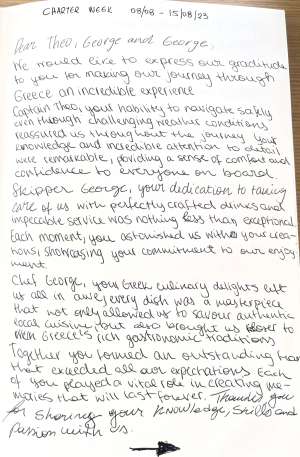 CHARTER WEEK 08/08 - 15/08/23
Dear Theo, George and George,
We would like to express our gratitude
to you for making our journey through
Greece an incredible experience
Captain Theo, your hability to navigate safely
even through challenging weather conditions
reassured us throughout the journey. Your
knowledge and incredible attention to detail
were remarkable, providing a sense of comfort and
confidence to everyone on board.
Skipper George, your dedication to taking
care of us with perfectly crafted drinks and
impeccable service was nothing less than exceptional
Each moment, you astonished us with your crea-
tions, showcasing your commitment to our enjoy
ment.
Chef George, your Greek culinary delights left
us all in awe, every dish was a masterpiece
that not only allowed us to savour authentic
local cuisine, but also brought us closer to
Greece's rich gastronomic traditions
Together you formed an outstanding team
that exceeded all our expectations. Each
of you played a vital role in creating me-
mories that will last forever. Thanked you
for sharing your knowledge, skills and
passion with us.